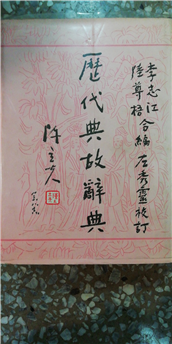 李志江
陸尊梧
合編 左秀靈校訂
歷代典故辭典
陳立夫